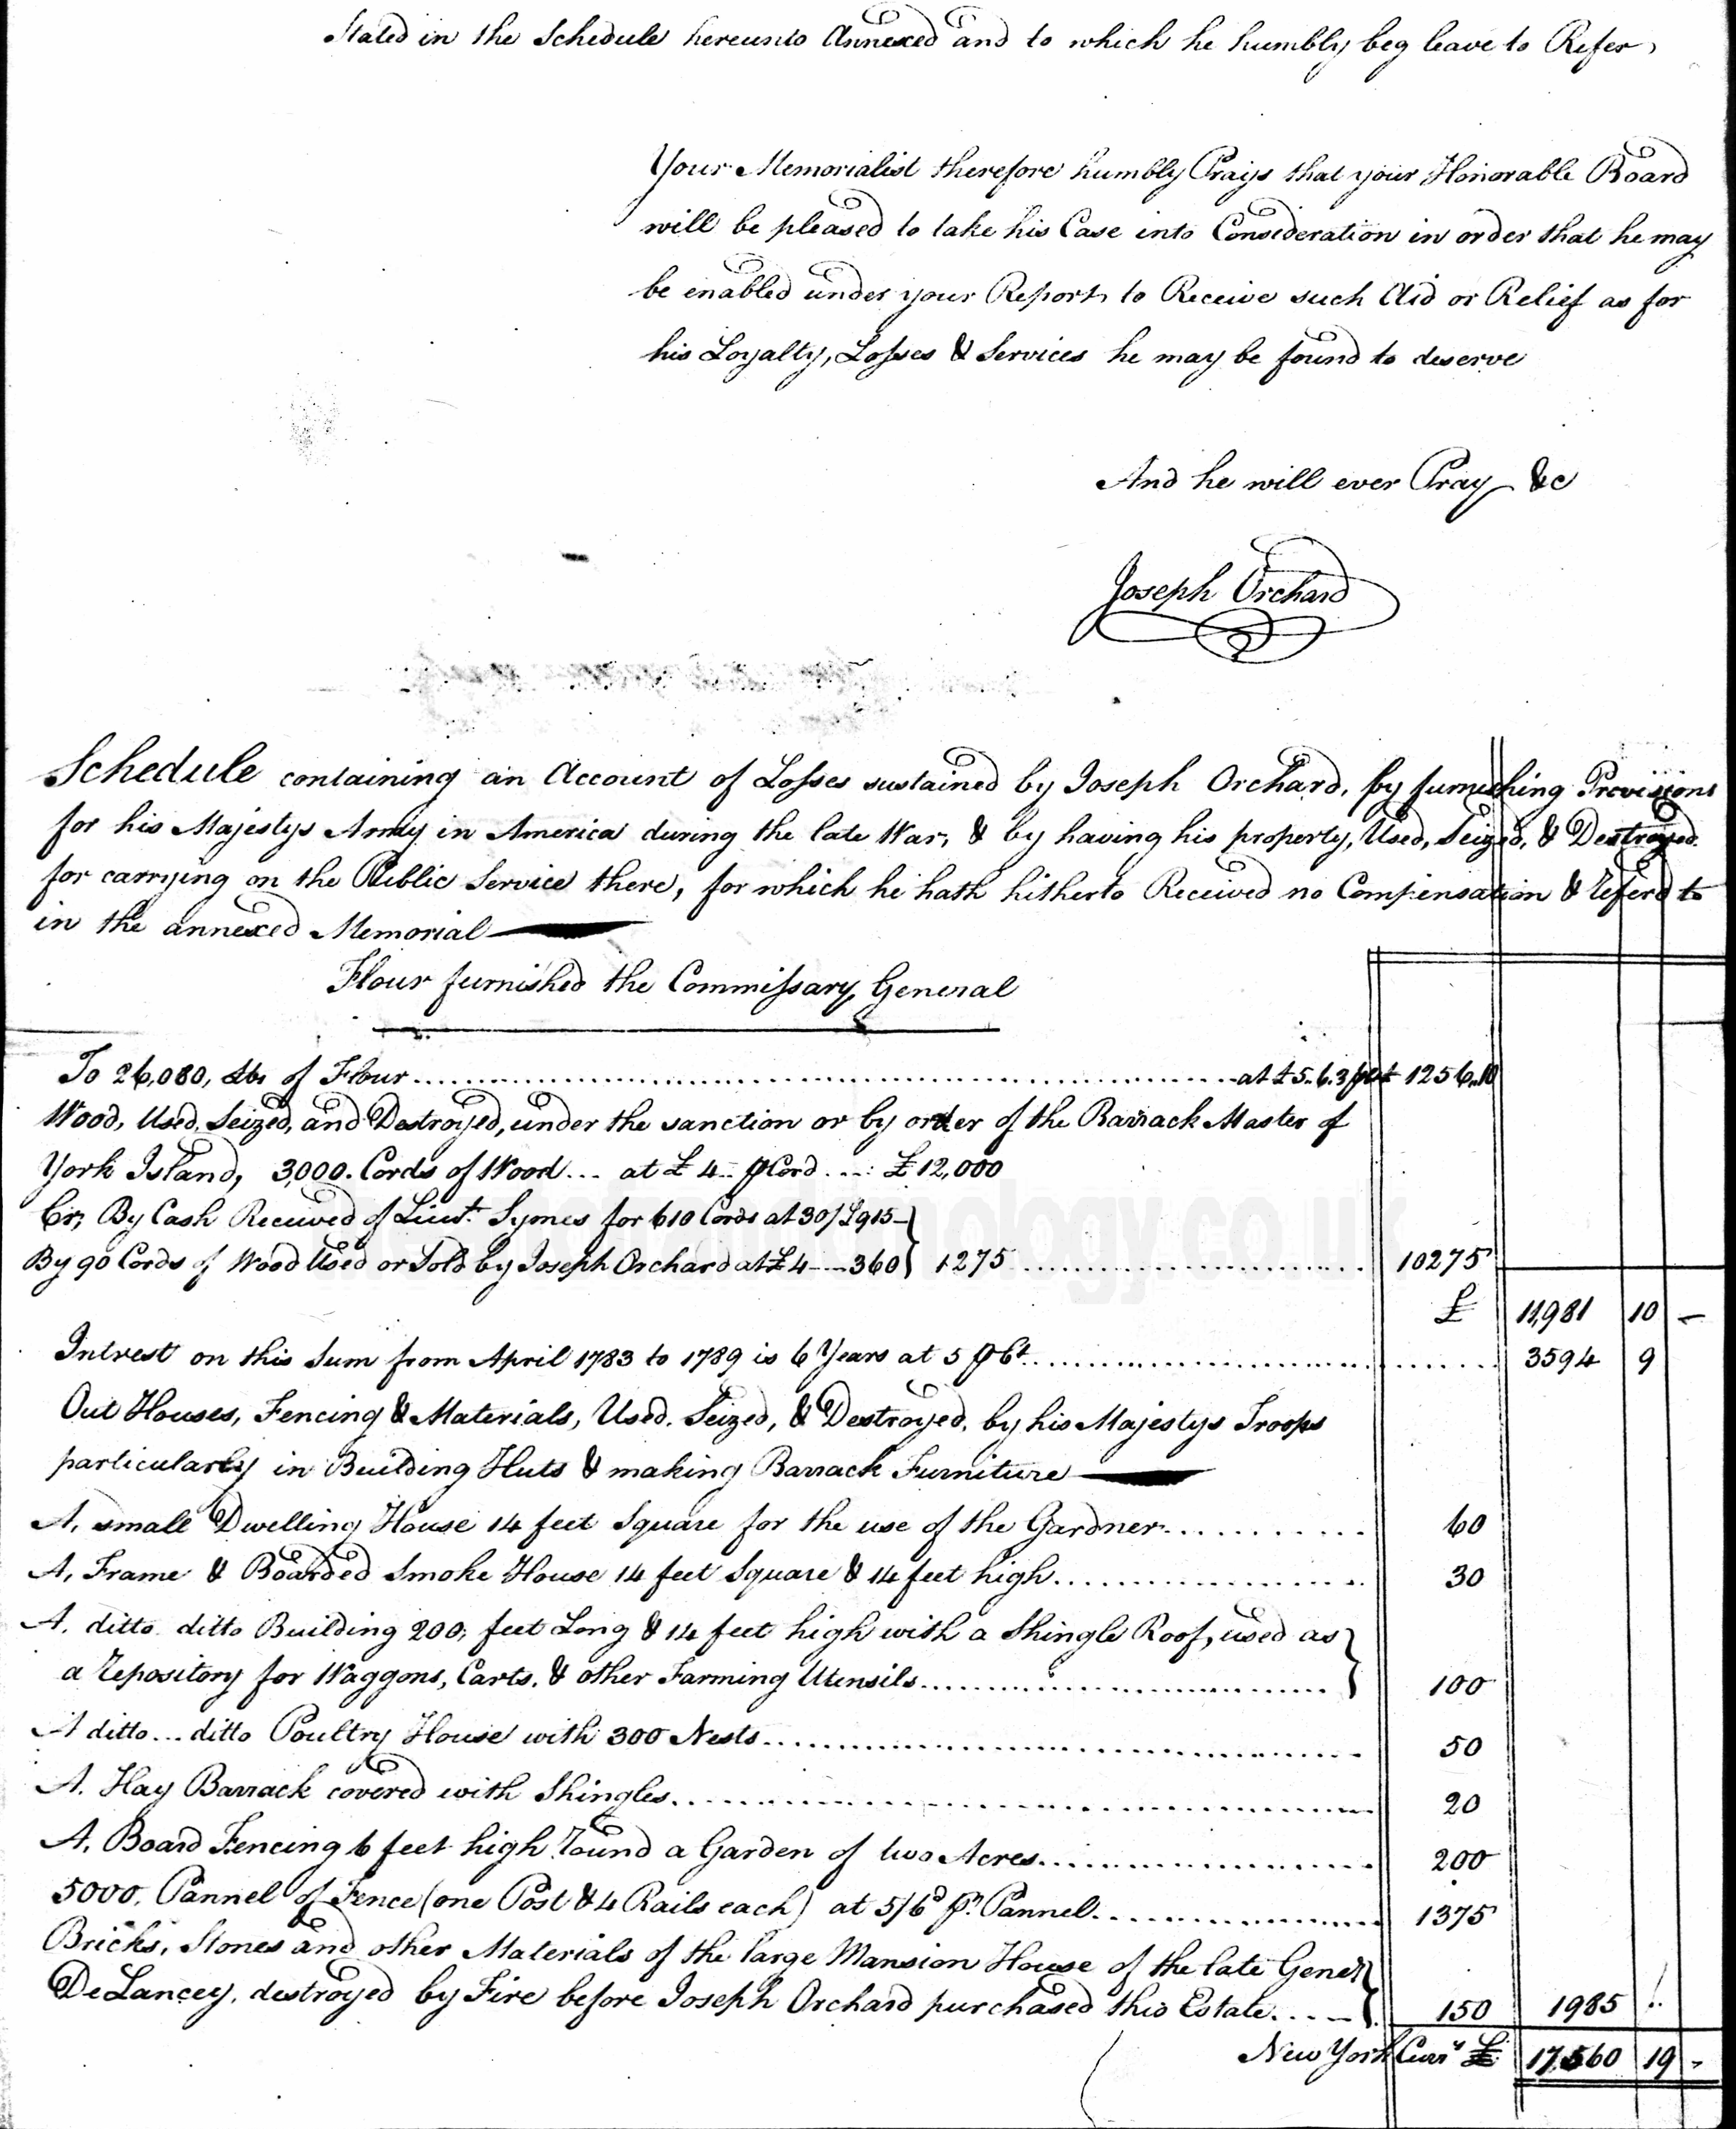 Stated in the Schedule hereunto Annexed and to which he humbly beg leave to Refer,
Your Memorialist therefore humbly Prays that your Honorable Board
will be pleased to take his Case into Consideration in order that he may
be enabled under your Report to Receive such Aid or Relief as for
his Loyalty, Losses & Services he may be found to deserve
And he will ever Pray &c
Joseph Orchard
Schedule containing an Account of Losses sustained by Joseph Orchard, by furnishing Provisions
for his Majestys Army in America during the late War, & by having his property, Used, Seized, & Destroyed
for carrying on the Public Service there, for which he hath hitherto Received no Compensation & referd to
in the annexed Memorial
Flour furnished the Commissary General
To 26,080, lbs of Flour at £5.6.3 pCt 1256.10
Wood, Used, Seized, and Destroyed, under the sanction or by order of the Barrack Master of
York Island, 3,000. Cords of Wood... at £4.. p Cord.... £12,000
Cr, By Cash Received of Lieut. Symes for 610 Cords at 30/ £915
By 90 Cords of Wood Used or Sold by Joseph Orchard at £4 360 } 1275 10275
£ 11,981 10 –
Intrest on this Sum from April 1783 to 1789 is 6 Years at 5 pCt. 3594 9
Out Houses, Fencing & Materials, Used, Seized, & Destroyed, by his Majestys Troops
particularly in Building Huts & making Barrack Furniture
A, small Dwelling House 14 feet Square for the use of the Gardner 60
A, Frame & Boarded Smoke House 14 feet Square & 14 feet high 30
A. ditto ditto Building 200, feet Long & 14 feet high with a Shingle Roof, used as
a repository for Waggons, Carts, & other Farming Utensils 100
A ditto... ditto Poultry House with 300 Nests 50
A. Hay Barrack covered with Shingles 20
A. Board Fencing 6 feet high round a Garden of two Acres 200
5000. Pannel of Fence (one Post & 4 Rails each) at 5/6d pr. Pannel 1375
Bricks, Stones and other Materials of the large Mansion House of the late Genel
DeLancey, destroyed by Fire before Joseph Orchard purchased this Estate 150 1985
New York Curry £ 17,560 19 -